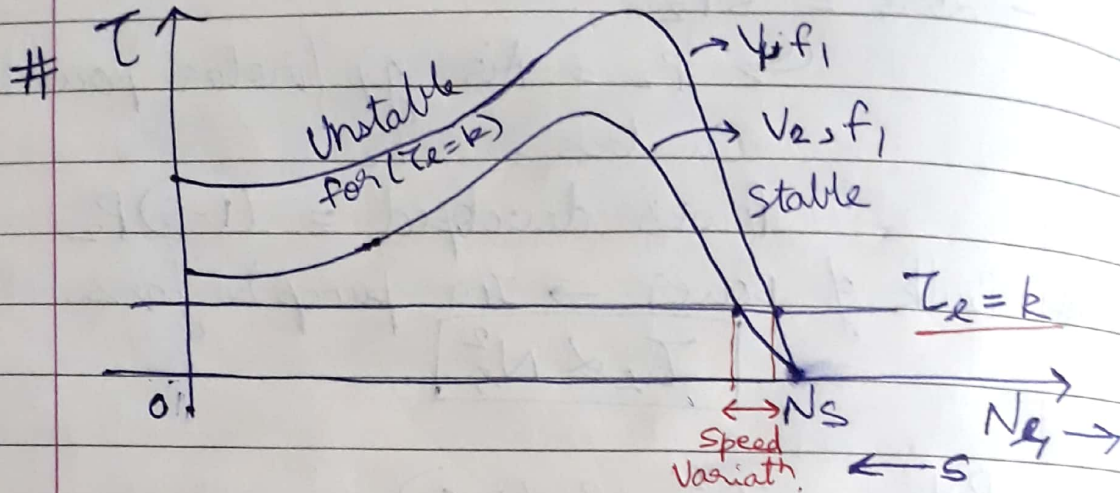 # τ
V₁, f₁
Unstable
for (τₑ=k)
V₂, f₁
Stable
τₑ = k
0
Ns
Nᵣ →
Speed
Variatn.
← s